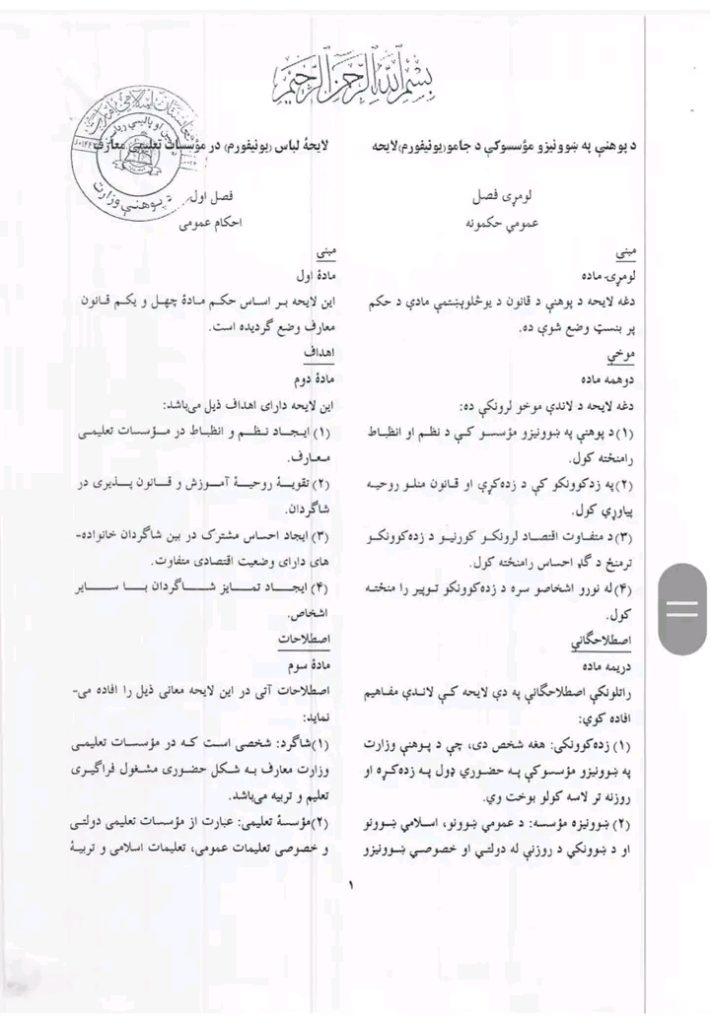 بسم الله الرحمن الرحيم
د پوهنې په ښوونیزو مؤسسوکې د جامو(یونیفورم)لایحه
لومړی فصل
عمومي حکمونه
مبنی
لومړۍ ماده
دغه لایحه د پوهنې د قانون د یوڅلوېښتمې مادې د حکم
پر بنسټ وضع شوې ده.
موخې
دوهمه ماده
دغه لایحه د لاندې موخو لرونکې ده:
(۱) د پوهنې په ښوونیزو مؤسسو کې د نظم او انظباط
رامنځته کول.
(۲) په زدکوونکو کې د زده‌کړې او قانون منلو روحیه
پیاوړې کول.
(۳) د متفاوت اقتصاد لرونکو کورنیو د زده‌کوونکو
ترمنځ د گډ احساس رامنځته کول.
(۴) له نورو اشخاصو سره د زده‌کوونکو توپیر را منځته
کول.
اصطلاحگانې
دریمه ماده
راتلونکې اصطلاحگانې په دې لایحه کې لاندې مفاهیم
افاده کوي:
(۱) زده‌کوونکی: هغه شخص دی، چې د پوهنې وزارت
په ښوونیزو مؤسسوکې په حضوري ډول په زده‌کړه او
روزنه تر لاسه کولو بوخت وي.
(۲) ښوونیزه مؤسسه: د عمومي ښوونو، اسلامي ښوونو
او د ښوونکي د روزنې له دولتي او خصوصي ښوونیزو
لایحهٔ لباس (یونیفورم) در مؤسسات تعلیمی معارف
فصل اول
احکام عمومی
مبنی
مادهٔ اول
این لایحه بر اساس حکم مادهٔ چهل و یکم قانون
معارف وضع گردیده است.
اهداف
مادهٔ دوم
این لایحه دارای اهداف ذیل می‌باشد:
(۱) ایجاد نظم و انظباط در مؤسسات تعلیمی
معارف.
(۲) تقویهٔ روحیهٔ آموزش و قانون پذیری در
شاگردان.
(۳) ایجاد احساس مشترک در بین شاگردان خانواده-
های دارای وضعیت اقتصادی متفاوت.
(۴) ایجاد تمایز شاگردان با سایر
اشخاص.
اصطلاحات
مادهٔ سوم
اصطلاحات آتی در این لایحه معانی ذیل را افاده می-
نماید:
(۱)شاگرد: شخصی است که در مؤسسات تعلیمی
وزارت معارف به شکل حضوری مشغول فراگیری
تعلیم و تربیه می‌باشد.
(۲)مؤسسهٔ تعلیمی: عبارت از مؤسسات تعلیمی دولتی
و خصوصی تعلیمات عمومی، تعلیمات اسلامی و تربیهٔ
د پوهنې وزارت
۱